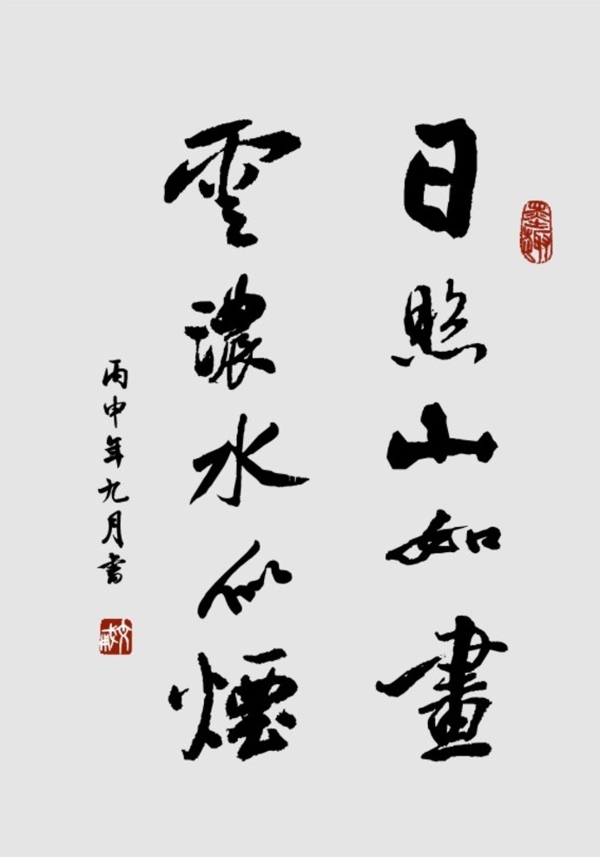 日照山如畫
雲濃水似煙
丙申年九月書